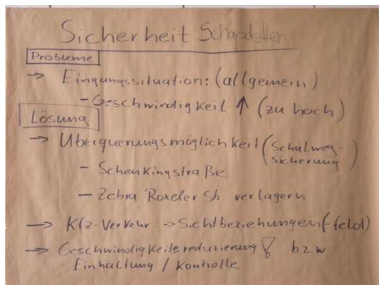 Sicherheit
Probleme
→ Eingungssituation: (allgemein)
- Geschwindigkeit ↑ (zu hoch)
Lösung
→ Überquerungsmöglichkeit (Schulweg-
sicherung)
- Schenkingstraße
- Zebra Roxeler Str. verlagern
→ Kfz-Verkehr → Sichtbeziehungen (-feld)
→ Geschwindigkeitsreduzierung bzw
- Einhaltung / Kontrolle